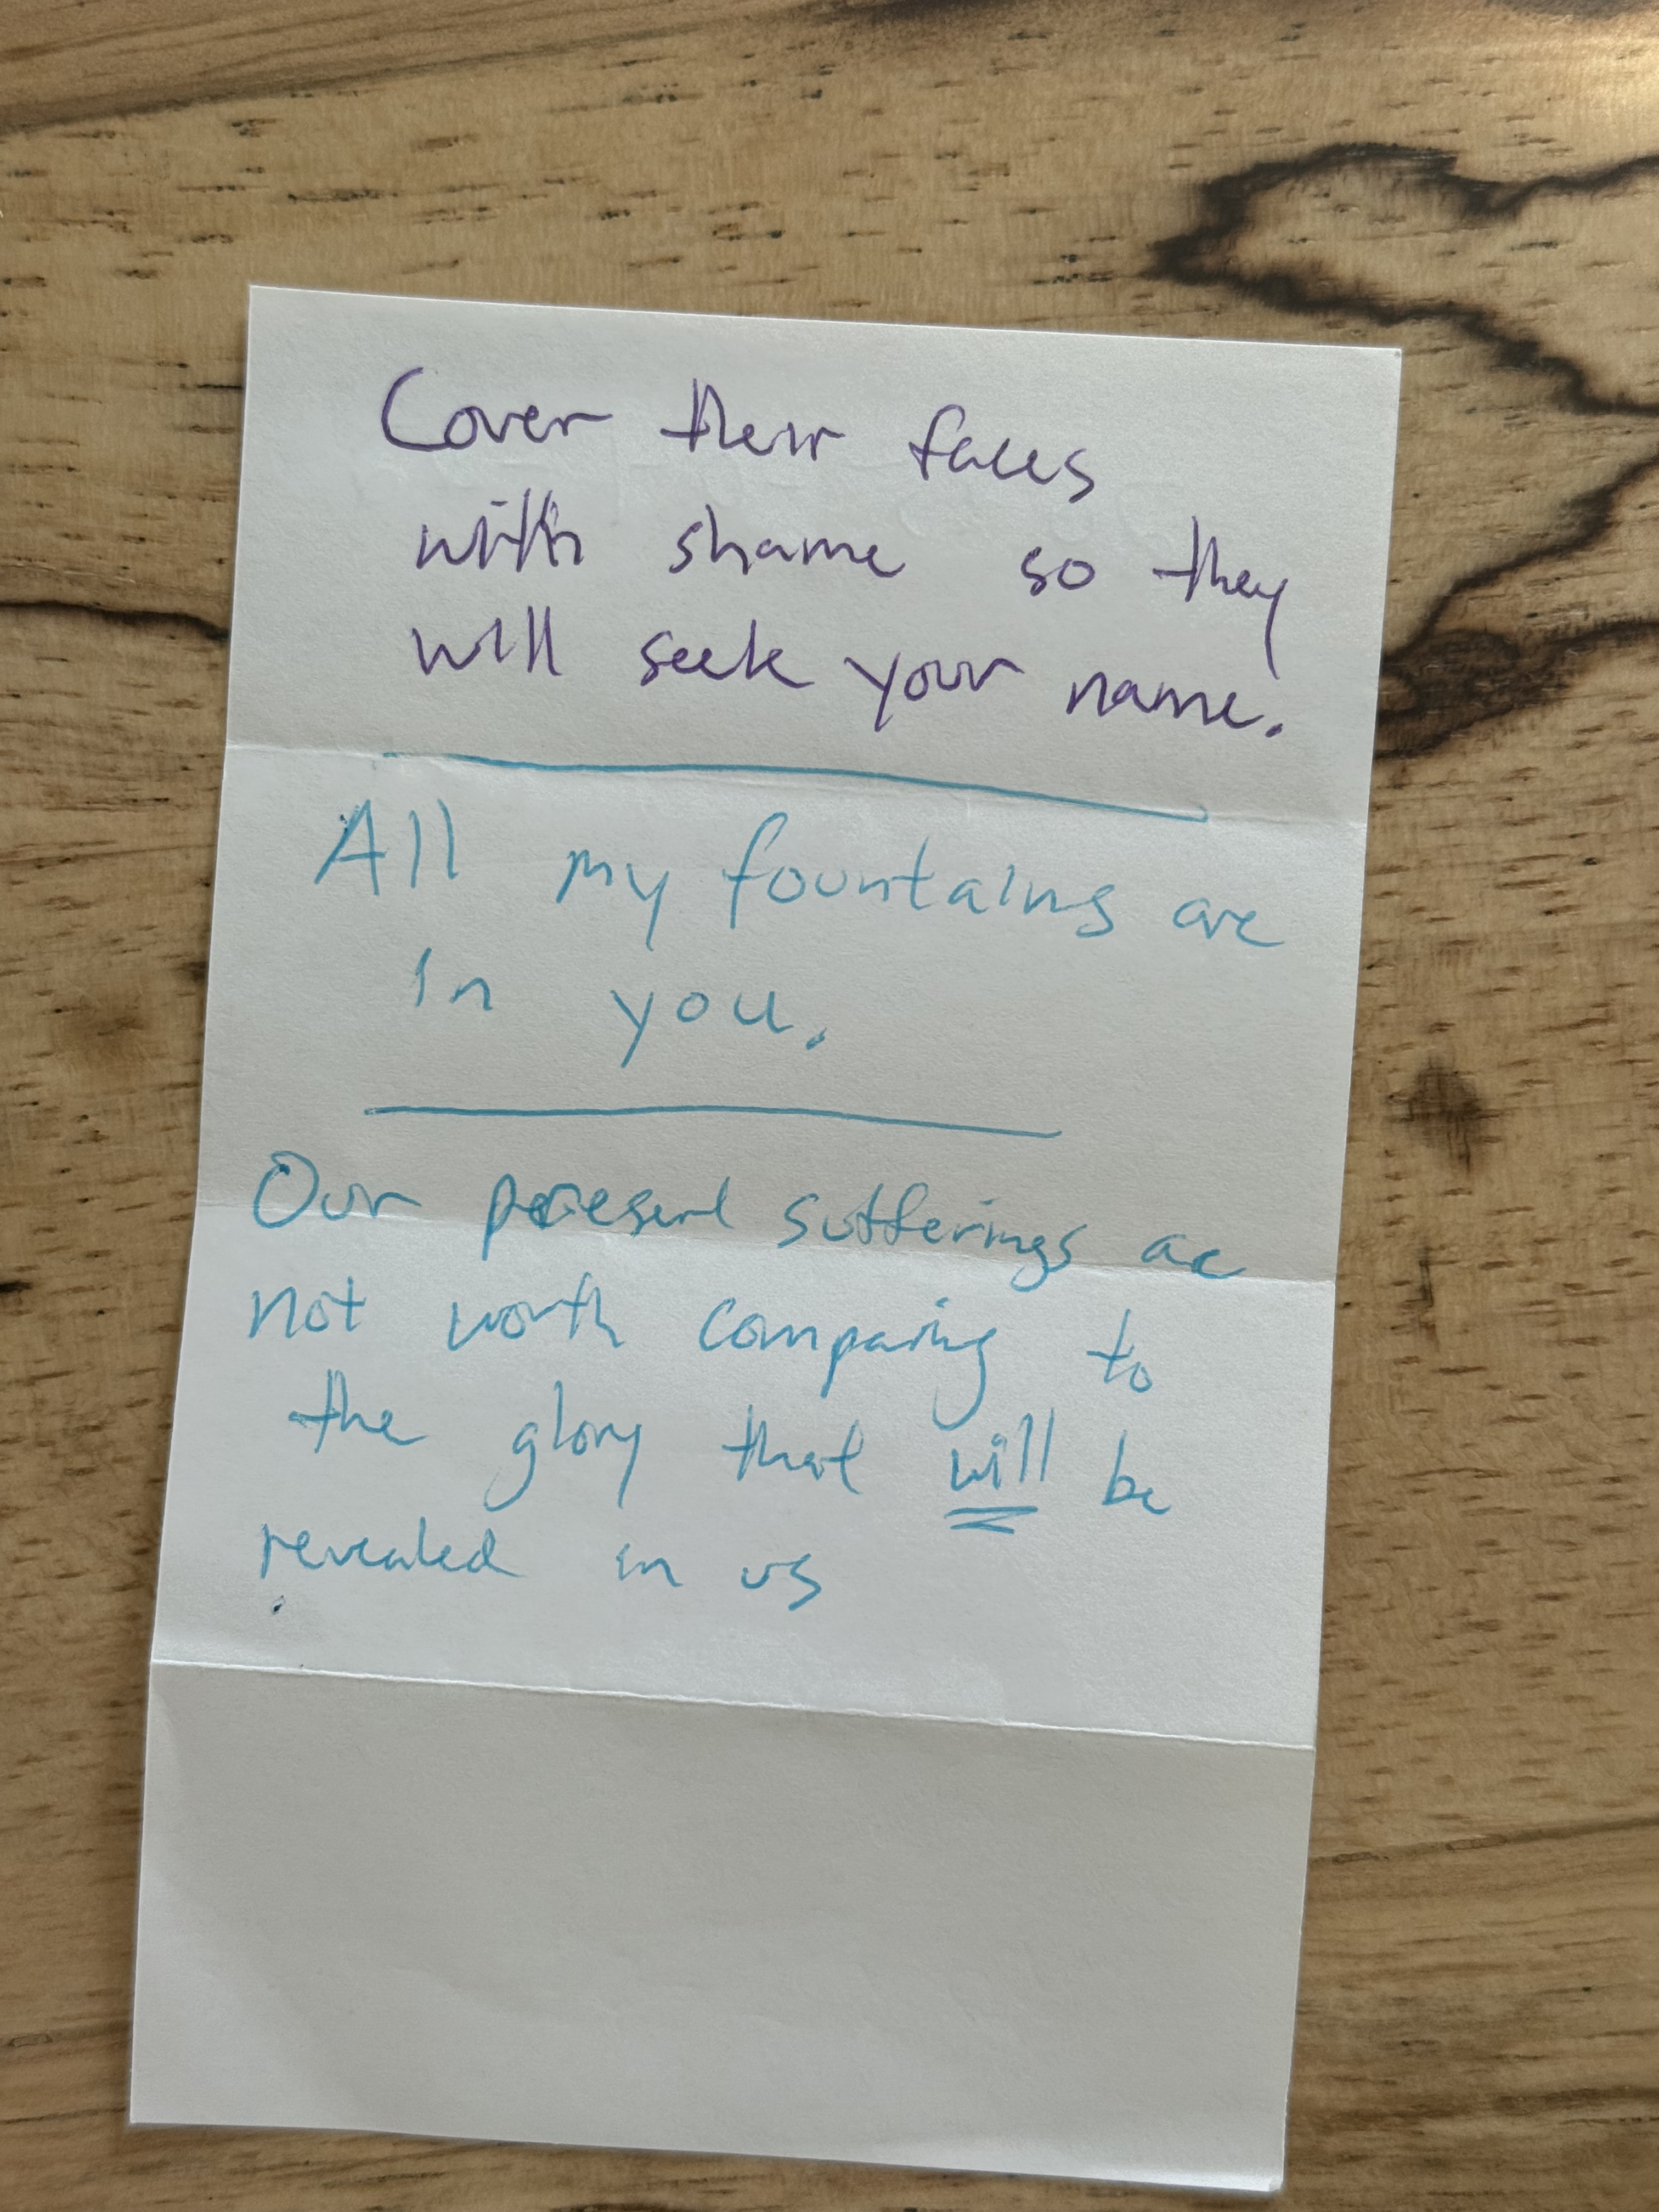 Cover their faces
with shame so they
will seek your name.
All my fountains are
in you.
Our present sufferings are
not worth comparing to
the glory that will be
revealed in us